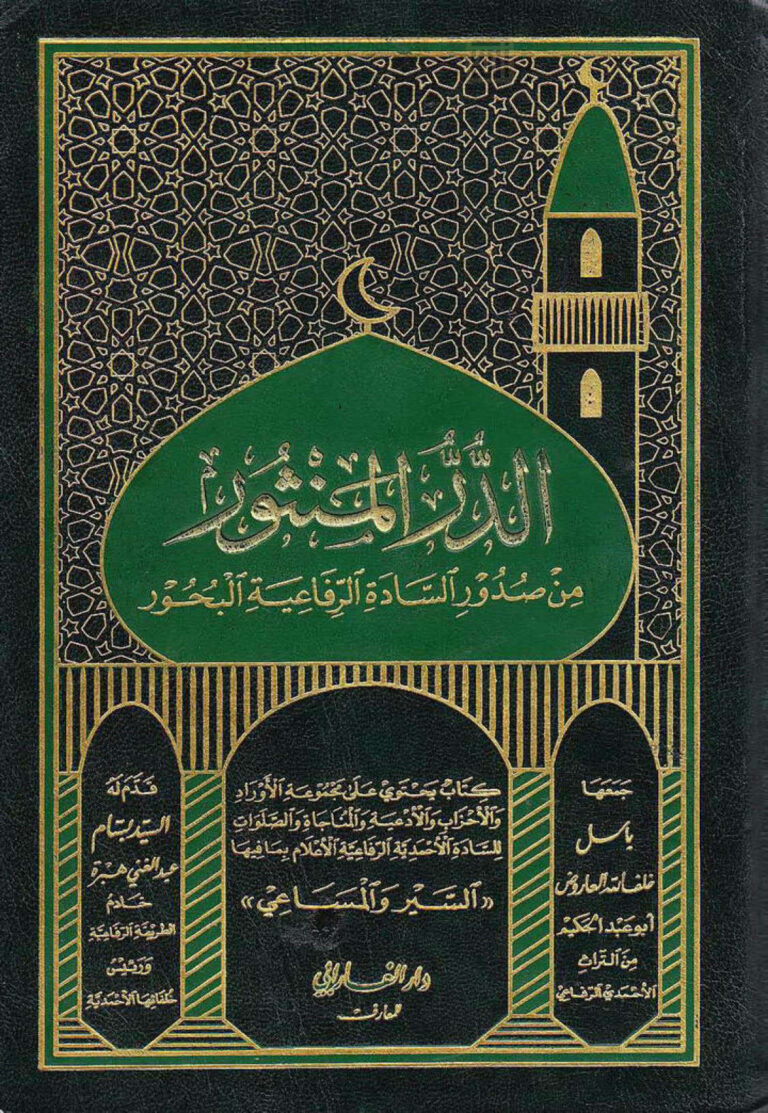 الدُّرُّ المَنْثُور
مِنْ صُدُوْرِ السَّادَةِ الرِّفَاعِيَةِ الْبُحُوْر
جَمَعَهَا
باسل
خلف الله العاروض
أبو عبد الحكيم
مِنَ التراث
الأحمدي الرفاعي
كِتَابٌ يَحْتَوِي عَلَى مَجْمُوعَةِ الْأَوْرَادِ
وَالْأَحْزَابِ وَالْأَدْعِيَةِ وَالْمُنَاجَاةِ وَالصَّلَوَاتِ
لِلسَّادَةِ الْأَحْمَدِيَّةِ الرِّفَاعِيَّةِ الْأَعْلَامِ بِمَا فِيهَا
«السَّيْر وَالْمَسَاعِيْ»
دار الفارابي
للمعارف
قَدَّمَ لَهُ
السيد بسّام
عبد الغني هبرة
خادم
الطريقة الرفاعية
ورئيس
خلفائها الأحمدية